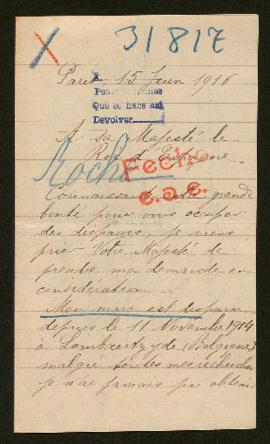 31817
Paris, 15 Juin 1916
A
Que se hace así
Devolver
A sa Majesté le
Roi d'Espagne
Roche
Fecho
e.a.e.
Connaissant votre grande
bonté pour vous occuper
des disparus, je viens
prier Votre Majesté de
prendre ma demande en
considération
Mon mari est disparu
depuis le 11 Novembre 1914
à (Belgique)
malgré toutes mes recherches
je n'ai jamais pu obtenir